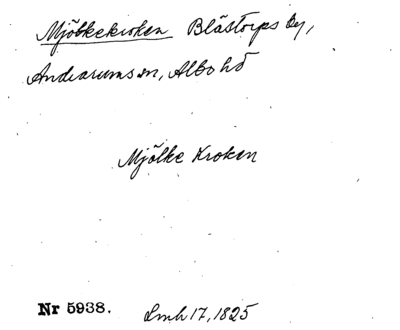 Mjölkekroken Blästorps by,
Andrarums sn, Albo hd
Mjölke Kroken
Nr 5938. Lmh 17, 1825